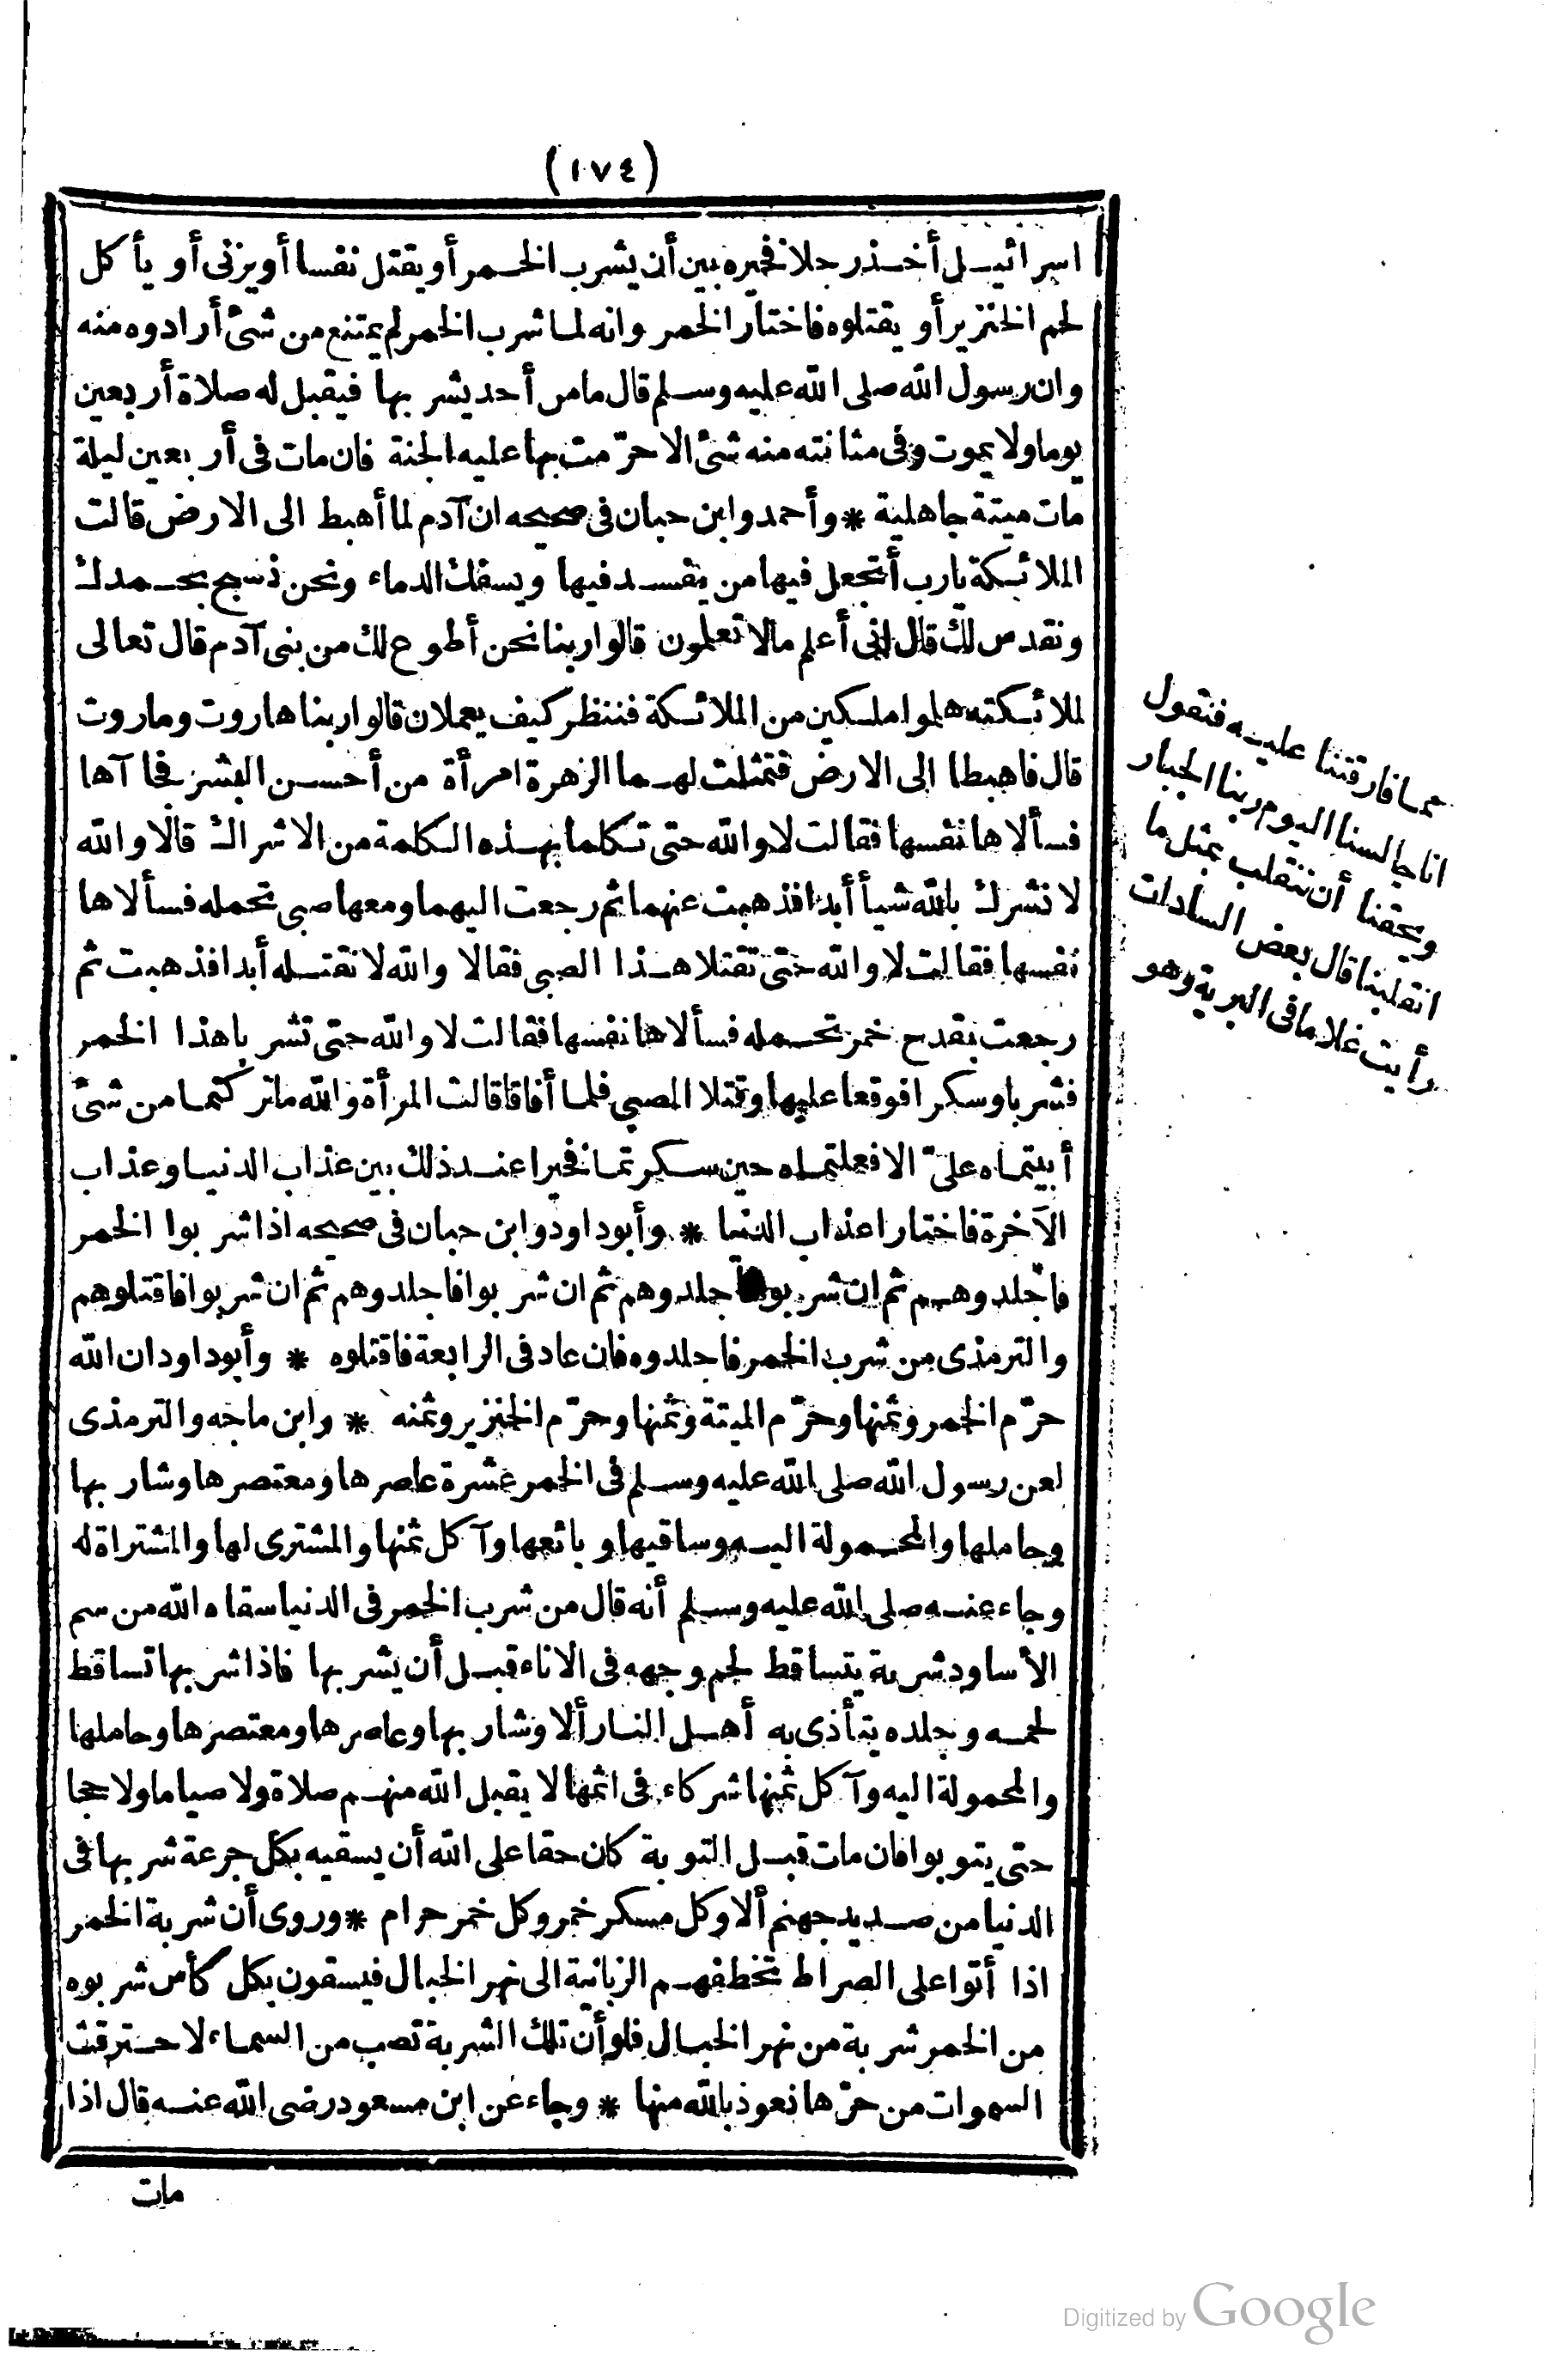 (١٧٤)
اسرائيل أخذ رجلا فخيره بين أن يشرب الخمر أو يقتل نفسا أو يزنى أو يأكل
لحم الخنزير أو يقتلوه فاختار الخمر وانه لما شرب الخمر لم يمتنع من شئ أرادوه منه
وان رسول الله صلى الله عليه وسلم قال ما من أحد يشربها فيقبل له صلاة أربعين
يوما ولا يموت وفى مثانته منه شئ الا حرّمت بها عليه الجنة فان مات فى أربعين ليلة
مات ميتة جاهلية * وأحمد وابن حبان فى صحيحه ان آدم لما أهبط الى الارض قالت
الملائكة يارب أتجعل فيها من يفسد فيها ويسفك الدماء ونحن نسبح بحمدك
ونقدس لك قال انى أعلم مالا تعلمون قالوا ربنا نحن أطوع لك من بنى آدم قال تعالى
للملائكته هلموا ملكين من الملائكة فننظر كيف يعملان قالوا ربنا هاروت وماروت
قال فاهبطا الى الارض فتمثلت لهما الزهرة امرأة من أحسن البشر فجاآها
فسألاها نفسها فقالت لا والله حتى تكلما بهذه الكلمة من الاشراك قالا والله
لا نشرك بالله شيأ أبدا فذهبت عنهما ثم رجعت اليهما ومعها صبى تحمله فسألاها
نفسها فقالت لا والله حتى تقتلا هذا الصبى فقالا والله لا نقتله أبدا فذهبت ثم
رجعت بقدح خمر تحمله فسألاها نفسها فقالت لا والله حتى تشربا هذا الخمر
فشربا وسكرا فوقعا عليها وقتلا الصبى فلما أفاقا قالت المرأة والله ما تركتما من شئ
أبيتماه علىّ الا فعلتماه حين سكرتما فخيرا عند ذلك بين عذاب الدنيا وعذاب
الآخرة فاختارا عذاب الدنيا * وأبوداود وابن حبان فى صحيحه اذا شربوا الخمر
فاجلدوهم ثم ان شربوا جلدوهم ثم ان شربوا فاجلدوهم ثم ان شربوا فاقتلوهم
والترمذى من شرب الخمر فاجلدوه فان عاد فى الرابعة فاقتلوه * وأبوداود ان الله
حرّم الخمر وثمنها وحرّم الميتة وثمنها وحرّم الخنزير وثمنه * وابن ماجه والترمذى
لعن رسول الله صلى الله عليه وسلم فى الخمر عشرة عاصرها ومعتصرها وشاربها
وحاملها والمحمولة اليه وساقيها وبائعها وآكل ثمنها والمشترى لها والمشتراة له
وجاء عنه صلى الله عليه وسلم أنه قال من شرب الخمر فى الدنيا سقاه الله من سم
الأساود شربة يتساقط لحم وجهه فى الاناء قبل أن يشربها فاذا شربها تساقط
لحمه وجلده يتأذى به أهل النار ألا وشاربها وعاصرها ومعتصرها وحاملها
والمحمولة اليه وآكل ثمنها شركاء فى اثمها لا يقبل الله منهم صلاة ولا صياما ولا حجا
حتى يتوبوا فان مات قبل التوبة كان حقا على الله أن يسقيه بكل جرعة شربها فى
الدنيا من صديد جهنم ألا وكل مسكر خمر وكل خمر حرام * وروى أن شربة الخمر
اذا أتوا على الصراط تخطفهم الزبانية الى نهر الخبال فيسقون بكل كأس شربوه
من الخمر شربة من نهر الخبال فلو أن تلك الشربة تصب من السماء لاحترقت
السموات من حرّها نعوذ بالله منها * وجاء عن ابن مسعود رضى الله عنه قال اذا
مات
عما فارقتنا عليه فنقول
انا جالسنا اليوم ربنا الجبار
ويحقنا أن ننقلب بمثل ما
انقلبنا قال بعض السادات
رأيت غلاما فى البرية وهو
Digitized by Google